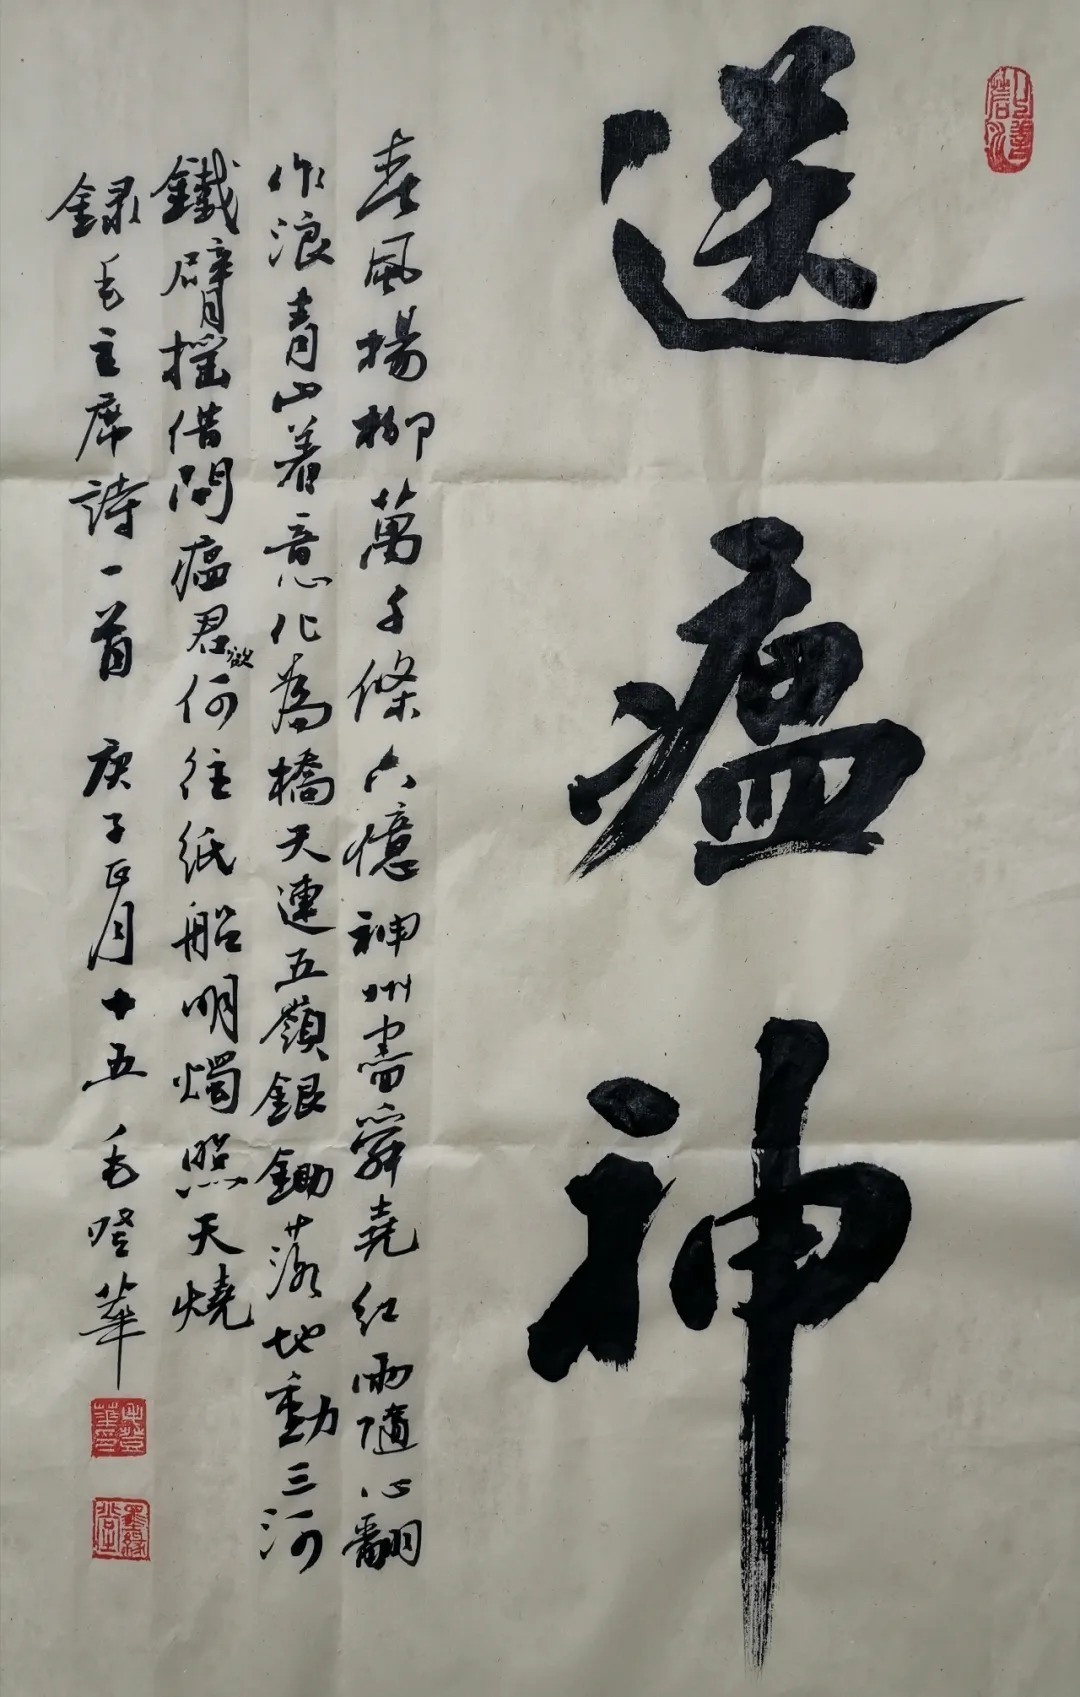 送瘟神
春風楊柳萬千條六億神州盡舜堯紅雨隨心翻
作浪青山着意化為橋天連五嶺銀鋤落地動三河
鐵臂搖借問瘟君欲何往紙船明燭照天燒
録毛主席詩一首 庚子正月十五 毛登華